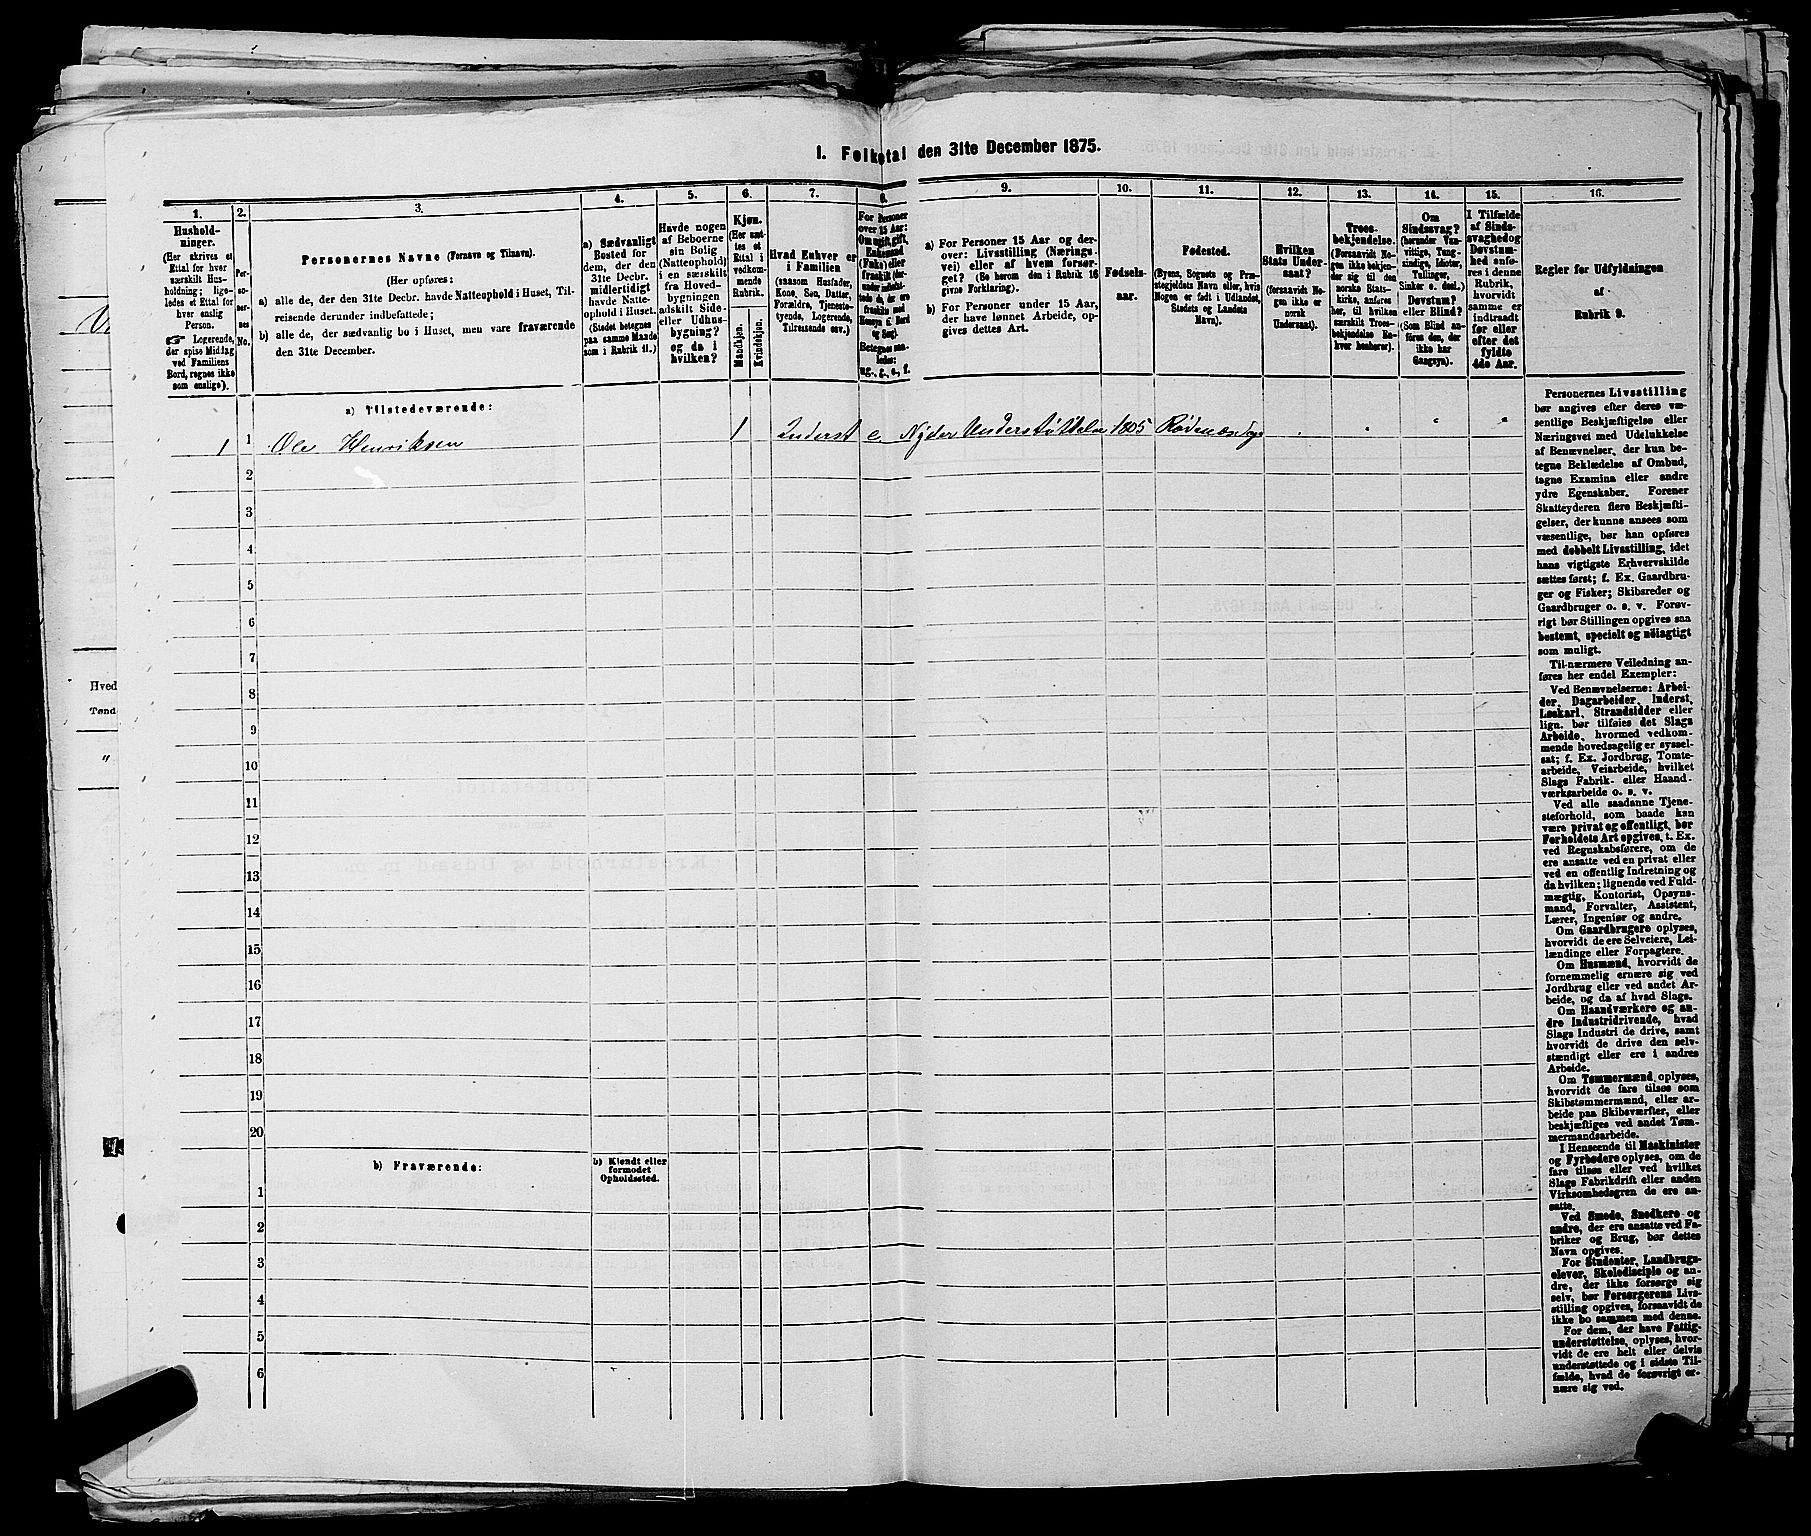 1. Folketal den 31te December 1875.
1.
2.
3.
4.
5.
6.
7.
8.
9.
10.
11.
12.
13.
14.
15.
16.
Hushold-
ninger.
(Her skrives et
Ettal for hver
særskilt Hus-
holdning; lige-
ledes et Ettal for
hver enslig
Person.
☞ Logerende,
der spise Middag
ved Familiens
Bord, regnes ikke
som enslige).
Per-
so-
ner-
nes
No.
Personernes Navne (Fornavn og Tilnavn).
(Her opføres:
a) alle de, der den 31te Decbr. havde Natteophold i Huset, Til-
reisende derunder indbefattede;
b) alle de, der sædvanlig bo i Huset, men vare fraværende
den 31te December.
a) Sædvanligt
Bosted for
dem, der den
31te Decbr.
midlertidigt
havde Natte-
ophold i Huset.
(Stedet betegnes
paa samme Maade
som i Rubrik 11.)
Havde nogen
af Beboerne
sin Bolig
(Natteophold)
i en særskilt
fra Hoved-
bygningen
adskilt Side-
eller Udhus-
bygning?
og da i
hvilken?
Kjøn.
(Her sæt-
tes et
Ettal i
vedkom-
mende
Rubrik.
Mandkjøn.
Kvindekjøn.
Hvad Enhver er
i Familien
(saasom Husfader,
Kone, Søn, Datter,
Forældre, Tjeneste-
tyende, Logerende,
Tilreisende osv.)
For Personer
over 15 Aar:
Om ugift, gift,
Enkemand
(Enke) eller
fraskilt
Betegnes saa-
ledes:
ug., g., e., f.
a) For Personer 15 Aar og der-
over: Livsstilling (Nærings-
vei) eller af hvem forsør-
get? (Se herom den i Rubrik 16
givne Forklaring).
b) For Personer under 15 Aar,
der have lønnet Arbeide, op-
gives dettes Art.
Fødsels-
aar.
Fødested.
(Byens, Sognets og Præ-
stegjeldets Navn eller, hvis
Nogen er født i Udlandet,
Stedets og Landets
Navn).
Hvilken
Stats Under-
saat?
(forsaavidt No-
gen ikke er
norsk
Undersaat).
Troes-
bekjendelse.
(Forsaavidt No-
gen ikke bekjen-
der sig til den
norske Stats-
kirke, anføres
her, til hvilken
særskilt Troes-
bekjendelse En-
hver henhører).
Om
Sindssvag?
(herunder Van-
vittige, Tung-
sindige, Idioter,
Tullinger,
Sinker o. desl.)
Døvstum?
eller Blind?
(Som Blind an-
føres den, der
ikke har
Gangsyn).
I Tilfælde
af Sinds-
svaghed og
Døvstum-
hed anfø-
res i denne
Rubrik,
hvorvidt
samme er
indtraadt
før eller
efter det
fyldte
4de Aar.
Regler for Udfyldningen
af
Rubrik 9.
a) Tilstedeværende:
1 1 Ole Henriksen 1 Inderst e. Nyder Understøttelse 1805 Rødenæs
2
3
4
5
6
7
8
9
10
11
12
13
14
15
16
17
18
19
20
b) Fraværende:
b) Kjendt eller
formodet
Opholdssted.
1
2
3
4
5
6
Personernes Livsstilling
bør angives efter deres væ-
sentlige Beskjæftigelse eller
Næringsvei med Udelukkelse
af Benævnelser, der kun be-
tegne Beklædelse af Ombud,
tagne Examina eller andre
ydre Egenskaber. Forener
Skatteyderen flere Beskjæfti-
gelser, der kunne ansees som
væsentlige, bør han opføres
med dobbelt Livsstilling, idet
hans vigtigste Erhvervskilde
sættes først; f. Ex. Gaardbru-
ger og Fisker; Skibsreder og
Gaardbruger o. s. v. Forøv-
rigt bør Stillingen opgives saa
bestemt, specielt og nøiagtigt
som muligt.
Til nærmere Veiledning an-
føres her endel Exempler:
Ved Benævnelserne: Arbei-
der, Dagarbeider, Inderst,
Løskarl, Strandsidder eller
lign. bør tilføies det Slags
Arbeide, hvormed vedkom-
mende hovedsagelig er syssel-
sat; f. Ex. Jordbrug, Tomte-
arbeide, Veiarbeide, hvilket
Slags Fabrik- eller Haand-
værksarbeide o. s. v.
Ved alle saadanne Tjene-
steforhold, som baade kan
være privat og offentligt, bør
Forholdets Art opgives, t. Ex.
ved Regnskabsførere, om de
ere ansatte ved en privat eller
ved en offentlig Indretning og
da hvilken; lignende ved Fuld-
mægtig, Kontorist, Opsyns-
mand, Forvalter, Assistent,
Lærer, Ingeniør og andre.
Om Gaardbrugere oplyses,
hvorvidt de ere Selveiere, Lei-
lændinge eller Forpagtere.
Om Husmænd, hvorvidt de
fornemmelig ernære sig ved
Jordbrug eller ved andet Ar-
beide, og da af hvad Slags.
Om Haandværkere og an-
dre Industridrivende, hvad
Slags Industri de drive, samt
hvorvidt de drive den selv-
stændigt eller ere i andres
Arbeide.
Om Tømmermænd oplyses,
hvorvidt de fare tilsøs som
Skibstømmermænd, eller ar-
beide paa Skibsværfter, eller
beskjæftiges ved andet Tøm-
mermandsarbeide.
I Henseende til Maskinister
og Fyrbødere oplyses, om de
fare tilsøs eller ved hvilket
Slags Fabrikdrift eller anden
Virksomhedsgren de ere an-
satte.
Ved Smede, Snedkere og
andre, der ere ansatte ved Fa-
briker og Brug, bør dettes
Navn opgives.
For Studenter, Landbrugs-
elever, Skoledisciple og an-
dre, der ikke forsørge sig
selv, bør Forsørgerens Livs-
stilling opgives, forsaavidt de
ikke bo sammen med denne.
For dem, der have Fattig-
understøttelse, oplyses, hvor-
vidt de ere helt eller delvis
understøttede og i sidste Til-
fælde, hvad de forøvrigt er-
nære sig ved.
Hved
Tønd